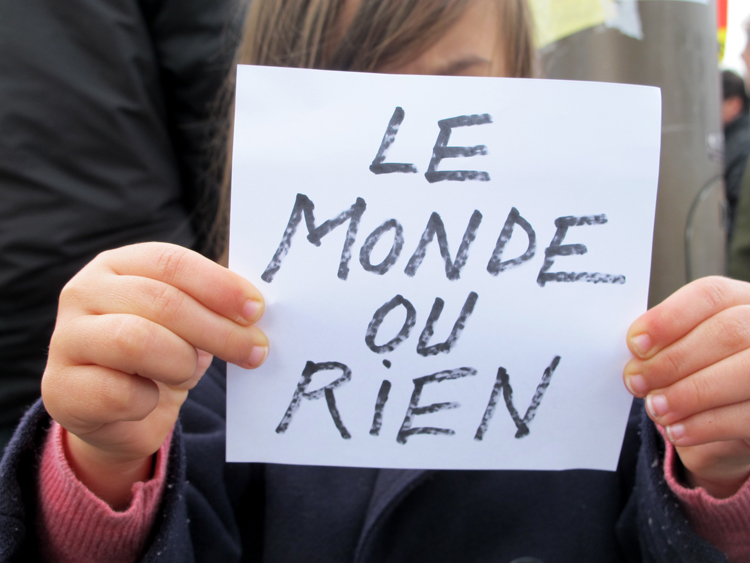 LE
MONDE
OU
RiEN